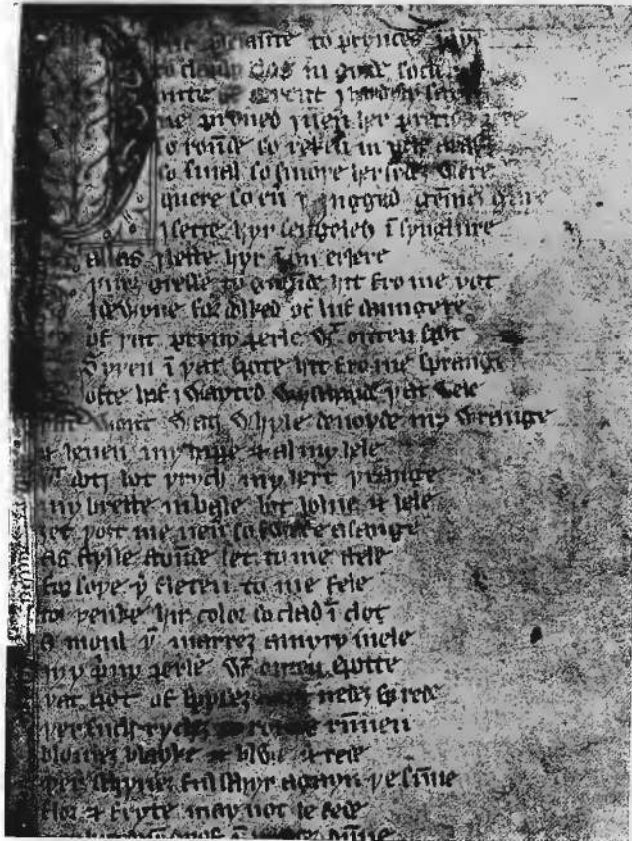 plesaunte to prynces paye
to clanly clos in golde so clere
oute of oryent I hardyly saye
ne proued I neu̅ her precios pere
so roūde so reken in vche araye
so smal so smoþe her sydeȝ were
quere so eu̅ I jugged gēmeȝ gaye
I sette hyr sengeley ī synglure
allas I leste hyr ī on erbere
þurȝ gresse to groūde hit fro me yot
I dewyne fordolked of luf daungere
of þat pryuy perle wt outen spot
Syþen ī þat spote hit fro me sprange
ofte haf I wayted wyschande þat wele
þat wont watȝ whyle deuoyde my wrange
& heuen my happe & al my hele
þt dotȝ bot þrych my hert þrange
my breste in bale bot bolne & bele
ȝet þoȝt me neu̅ so swete a sange
as stylle stoūde let to me stele
forsoþe þ̅ fleten to me fele
to þenke hir color so clad ī clot
o moul þu marreȝ a myry iuele
my p̅uy perle wt outen spotte
þat spot of spyseȝ nedeȝ sprede
þer such rycheȝ to rot is rūnen
blomeȝ blayke & blwe & rede
þer schyneȝ ful schyr agayn þe sūne
flor & fryte may not be fede
drof ī dūne